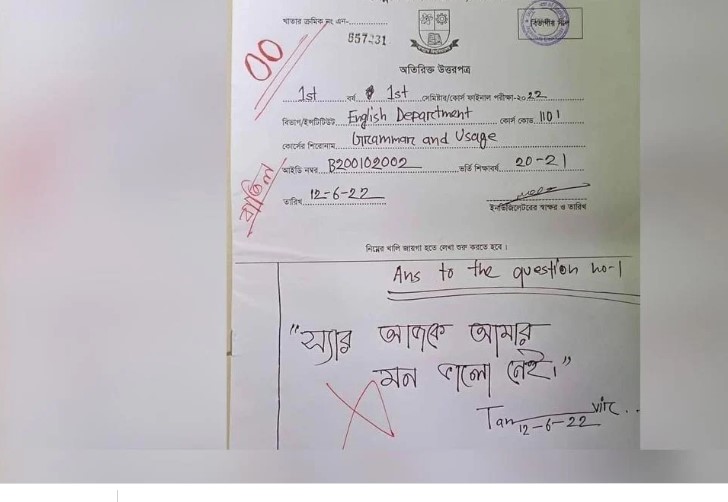 খাতার ক্রমিক নং এন-
857231
00
অতিরিক্ত উত্তরপত্র
1st বর্ষ 1st সেমিষ্টার/কোর্স ফাইনাল পরীক্ষা-২০22
বিভাগ/ইনষ্টিটিউট English Department কোর্স কোড 1101
কোর্সের শিরোনাম Grammar and Usage
আইডি নম্বর B200102002 ভর্তি শিক্ষাবর্ষ 20-21
বাতিল
তারিখ 12-6-22
ইনভিজিলেটরের স্বাক্ষর ও তারিখ
নিম্নের খালি জায়গা হতে লেখা শুরু করতে হবে।
Ans to the question no-1
"স্যার আজকে আমার
মন ভালো নেই।"
Tan vir
12-6-22